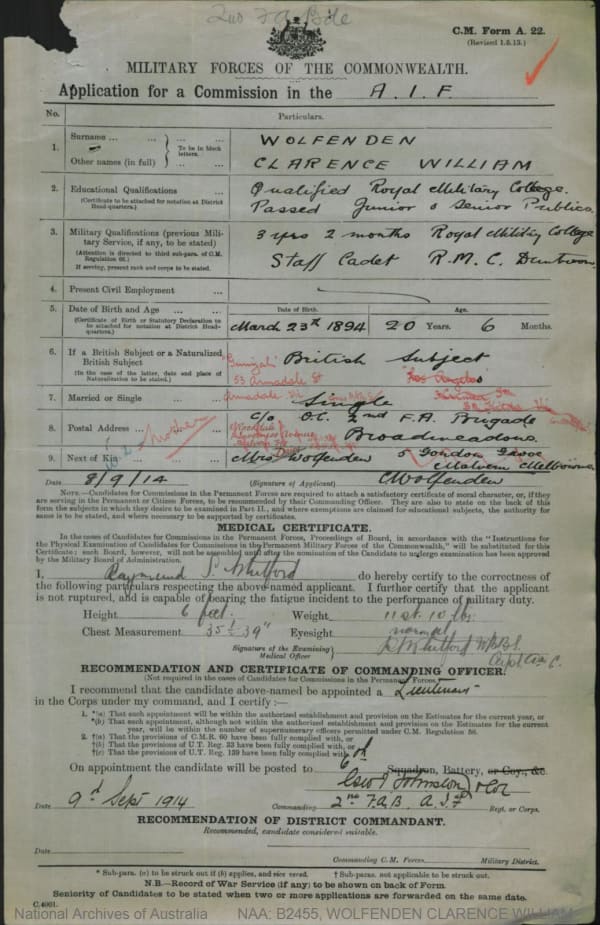 2nd F A Bde
C.M. Form A. 22.
(Revised 1.5.13.)
MILITARY FORCES OF THE COMMONWEALTH.
Application for a Commission in the A. I. F.
No. Particulars.
1. Surname ... ... ... ... WOLFENDEN
To be in block letters.
Other names (in full) ... ... CLARENCE WILLIAM
2. Educational Qualifications ... Qualified Royal Military College.
(Certificate to be attached for notation at District Head-quarters.) Passed Junior & Senior Publics.
3. Military Qualifications (previous Mili- 3 yrs 2 months Royal Military College
tary Service, if any, to be stated)
(Attention is directed to third sub-para. of C.M. Regulation 62.) Staff Cadet R.M.C. Duntroon
If serving, present rank and corps to be stated.
4. Present Civil Employment ...
5. Date of Birth and Age ... ... Date of Birth. Age.
(Certificate of Birth or Statutory Declaration to be attached for notation at District Head-quarters.) March 23rd 1894 20 Years. 6 Months.
6. If a British Subject or a Naturalized British Subject British Subject
(In the case of the latter, date and place of Naturalization to be stated.)
53 Armadale St "Los Angelos"
7. Married or Single ... ... Single
Armadale
8. Postal Address ... ... ... c/o O.C. 2nd F.A. Brigade
Mother Broadmeadows.
9. Next of Kin ... ... ... Mrs Wolfenden 5 Gordon Grove
Malvern Melbourne.
Date 8/9/14 (Signature of Applicant) CWolfenden
NOTE.—Candidates for Commissions in the Permanent Forces are required to attach a satisfactory certificate of moral character, or, if they
are serving in the Permanent or Citizen Forces, to be recommended by their Commanding Officer. They are also to state on the back of this
form the subjects in which they desire to be examined in Part II., and where exemptions are claimed for educational subjects, the authority for
same is to be stated, and where necessary to be supported by certificates.
MEDICAL CERTIFICATE.
In the cases of Candidates for Commissions in the Permanent Forces, Proceedings of Board, in accordance with the "Instructions for
the Physical Examination of Candidates for Commissions in the Permanent Military Forces of the Commonwealth," will be substituted for this
Certificate; such Board, however, will not be assembled until after the nomination of the Candidate to undergo examination has been approved
by the Military Board of Administration.
I, Raymund S. Whitford do hereby certify to the correctness of
the following particulars respecting the above-named applicant. I further certify that the applicant
is not ruptured, and is capable of bearing the fatigue incident to the performance of military duty.
Height 6 feet. Weight 11 st. 10 lbs.
Chest Measurement 35½ 39" Eyesight normal
Signature of the Examining Medical Officer
RECOMMENDATION AND CERTIFICATE OF COMMANDING OFFICER.
(Not required in the cases of Candidates for Commissions in the Permanent Forces.)
I recommend that the candidate above-named be appointed a Lieutenant
in the Corps under my command, and I certify :—
1. *(a) That such appointment will be within the authorized establishment and provision on the Estimates for the current year, or
*(b) That such appointment, although not within the authorized establishment and provision on the Estimates for the current
year, will be within the number of supernumerary officers permitted under C.M. Regulation 56.
2. †(a) That the provisions of C.M.R. 60 have been fully complied with, or
†(b) That the provisions of U.T. Reg. 33 have been fully complied with, or
†(c) That the provisions of U.T. Reg. 139 have been fully complied with
On appointment the candidate will be posted to 6th Squadron, Battery, or Coy., &c.
Geo J Johnston Lt Col
Date 9th Sept 1914 Commanding 2nd F.A.B. A.I.F Regt. or Corps.
RECOMMENDATION OF DISTRICT COMMANDANT.
Recommended, candidate considered suitable.
Date
Commanding C.M. Forces Military District.
* Sub-para. (a) to be struck out if (b) applies, and vice versâ. † Sub-paras. not applicable to be struck out.
N.B.—Record of War Service (if any) to be shown on back of Form.
Seniority of Candidates to be stated when two or more applications are forwarded on the same date.
C.4001.
National Archives of Australia NAA: B2455, WOLFENDEN CLARENCE WILLIAM